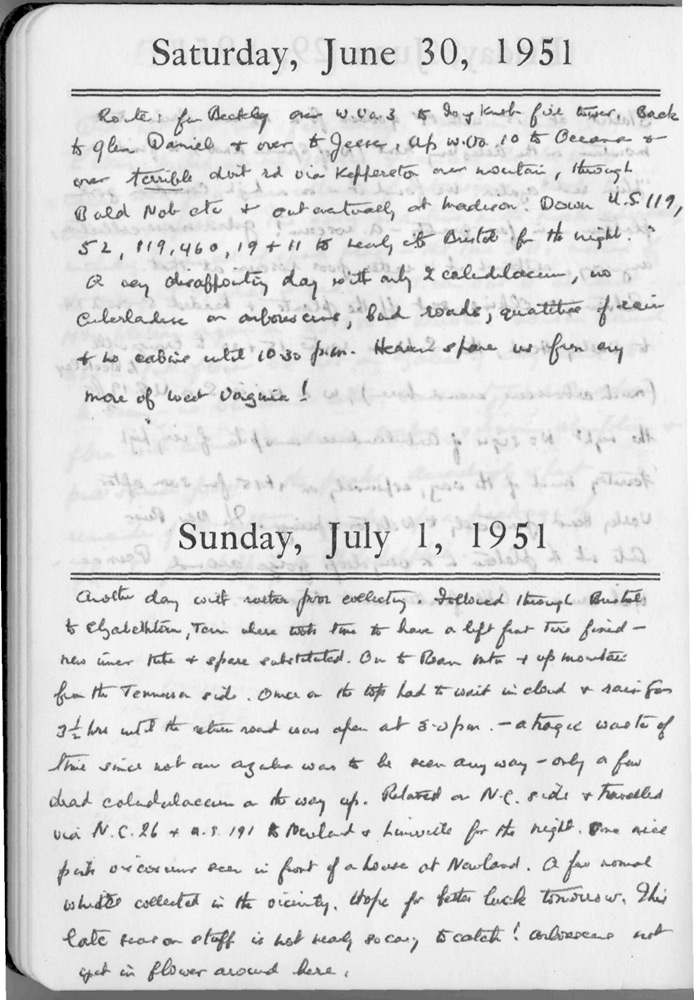 Saturday, June 30, 1951
Route: fm Beckley over W.Va 3 to fire tower. Back
to Glen Daniel & over to Jesse, up W.Va. 10 to Oceana &
over terrible dirt rd via Kopperston over mountain, through
Bald Nob etc & out eventually at Madison. Down U.S 119,
52, 119, 460, 19 + 11 to nearly at Bristol for the night.
A very disappointing day with only 2 calendulaceum, no
or arborescens, bad roads, quantities of rain
& no cabins until 10-30 p.m. Heaven spare us from any
more of West Virginia!
Sunday, July 1, 1951
Another day with rather poor collecting. Followed through Bristol
to Elizabethton, Tenn where lost time to have a left front tire fixed -
new inner tube & spare substituted. On to Roan Mtn & up mountain
from the Tennessee side. Once on the top had to wait in cloud & rain for
3½ hrs until the return road was open at 5-0 pm. - a tragic waste of
time since not an azalea was to be seen anyway - only a few
dead calendulaceum on the way up. Returned on N.C. side & travelled
via N.C. 26 & U.S. 191 to Newland & Linville for the night. One nice
pink viscosum seen in front of a house at Newland. A few normal
whites collected in the vicinity. Hope for better luck tomorrow. This
late season stuff is not really so easy to catch! Arborescens not
yet in flower around here.